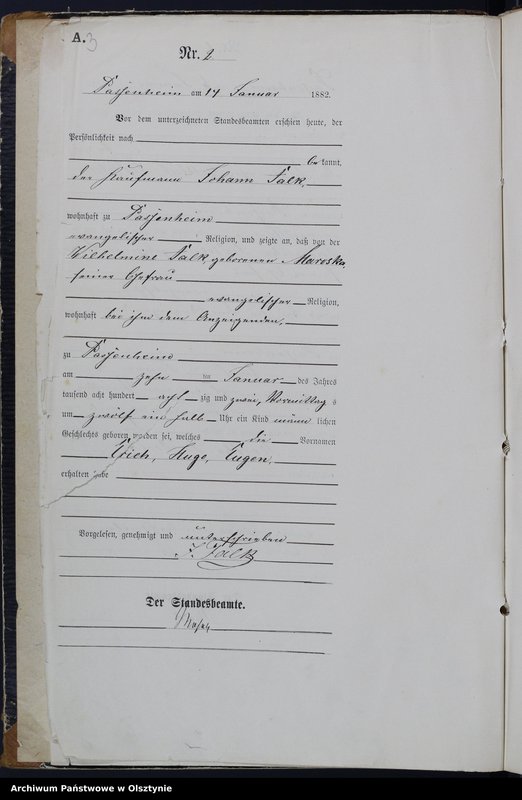 A. 3
Nr. 2
Passenheim am 14 Januar 1882.
Vor dem unterzeichneten Standesbeamten erschien heute, der
Persönlichkeit nach
be kannt,
der Kaufmann Johann Falk,
wohnhaft zu Passenheim
evangelischer Religion, und zeigte an, daß von der
Wilhelmine Falk geborenen
seiner Ehefrau
evangelischer Religion,
wohnhaft bei ihm dem Anzeigenden,
zu Passenheim
am zehn ten Januar des Jahres
tausend acht hundert acht zig und zwei, Vormittag s
um zwölf ein halb Uhr ein Kind männ lichen
Geschlechts geboren worden sei, welches die Vornamen
Erich, Hugo, Eugen,
erhalten habe
Vorgelesen, genehmigt und unterschrieben
J. Falk
Der Standesbeamte.
Archiwum Państwowe w Olsztynie